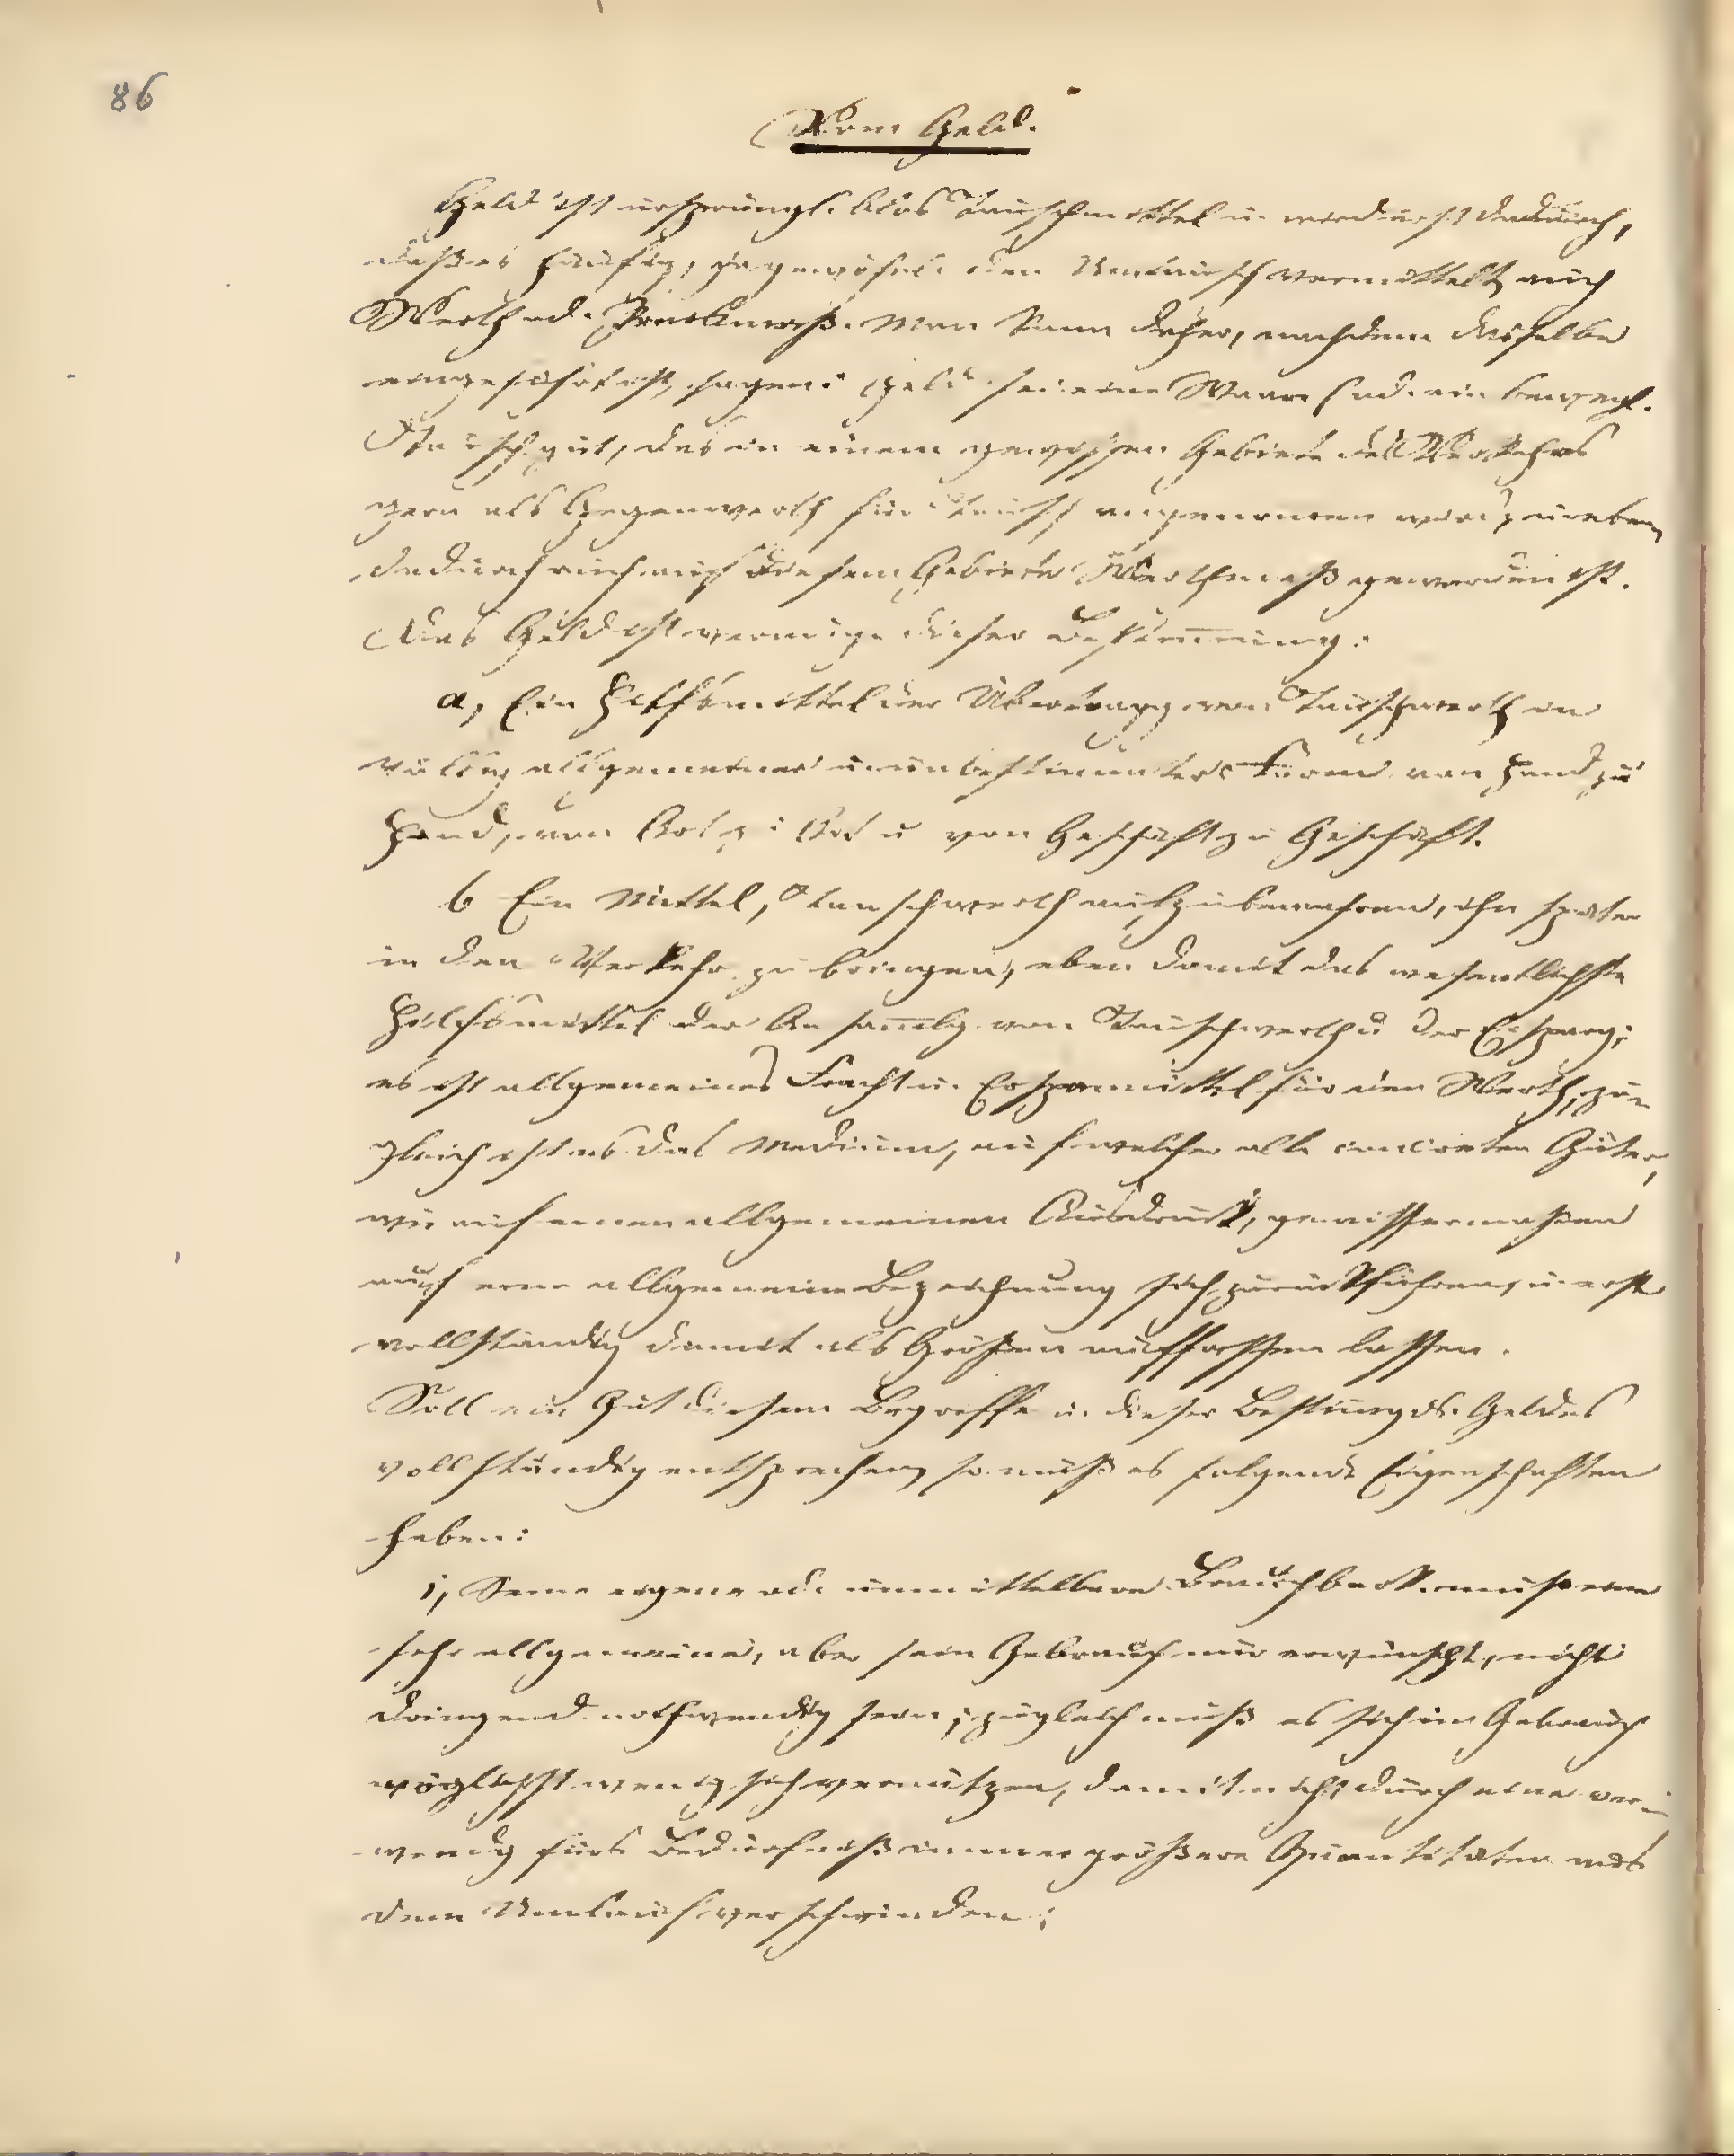 86
Vom Geld.
Geld ist ursprüngl. blos Tauschmittel u. wird erst dadurch,
daß es häufig, ja gewöhnl. den Umtausch vermittelt, auch
Werth od. Preismaß. Man kann daher, nachdem dasselbe
eingeführt ist, sagen: Geld sei eine Waare od. ein bewegl.
Tauschgut, das in einem gewissen Gebiete des Verkehrs
gern als Gegenwerth für Tausch angenommen wird, u. eben
dadurch auch auf diesem Gebiete Werthmaß geworden ist.
Das Geld ist vermöge dieser Bestimmung:
a, Ein Hilfsmittel der Übertragg. von Tauschwerth in
völlig allgemeiner u. unbestimmter Form von Hand zu
Hand, von Ort zu Ort u von Geschäft zu Geschäft.
b Ein Mittel, Tauschwerth aufzubewahren, ihn später
in den Verkehr zu bringen, eben damit das wesentlichste
Hilfsmittel der Ansammlg von Tauschwerth u der Ersparg;
es ist allgemeines Fracht u. Ersparmittel für den Werth, zu-
gleich ist es das Medium, auf welches alle concreten Güter,
wie auf einen allgemeinen Ausdruck, gewissermaßen
auf eine allgemeine Bezeichnung sich zurückführen, u. erst
vollständig damit als Größen auffassen lassen.
Soll ein Gut diesem Begriffe u. dieser Bestimmg ds. Geldes
vollständig entsprechen, so muß es folgende Eigenschaften
haben:
1, Seine eigene od. unmittelbare Brauchbark. muß eine
sehr allgemeine, aber sein Gebrauch nur erwünscht, nicht
dringend nothwendig sein; zugleich muß es sich im Gebrauch
möglichst wenig sich vernutzen, damit nicht durch eine ver-
wendg fürs Bedürfniß immer größere Quantitäten aus
dem Umlauf verschwinden;